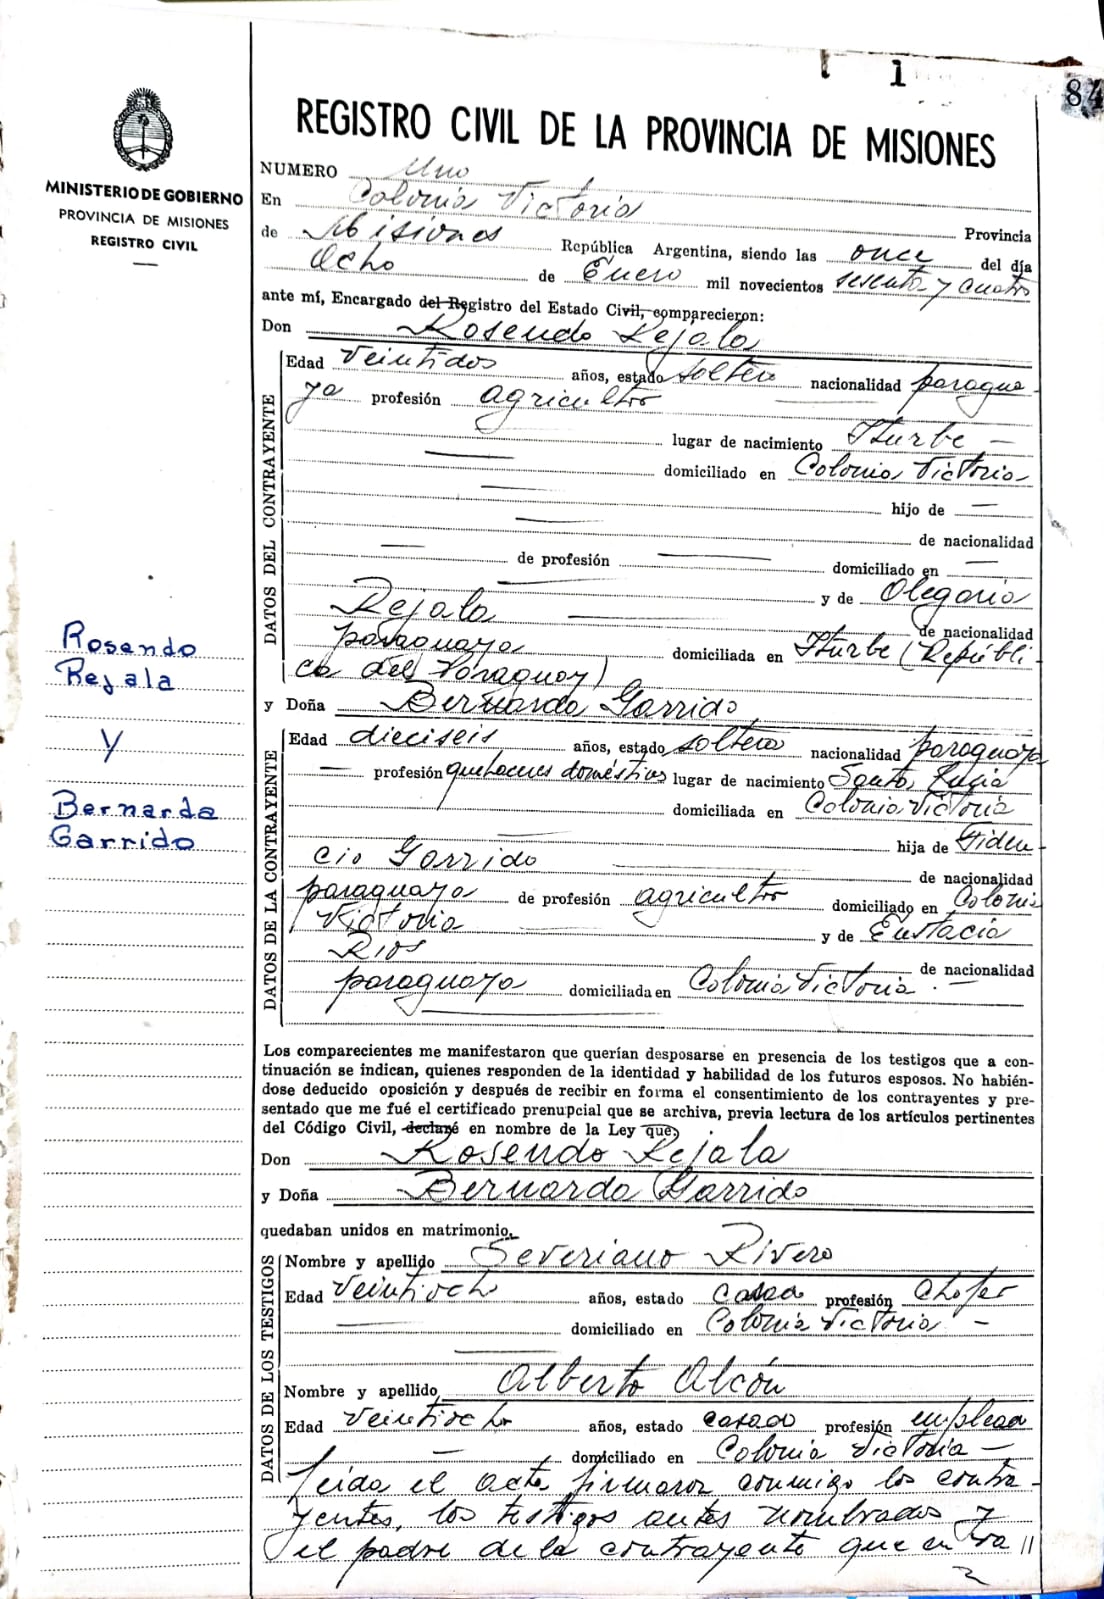 1
84
MINISTERIO DE GOBIERNO
PROVINCIA DE MISIONES
REGISTRO CIVIL
REGISTRO CIVIL DE LA PROVINCIA DE MISIONES
NUMERO Uno
En Colonia Victoria Provincia
de Misiones República Argentina, siendo las once del día
Ocho de Enero mil novecientos sesenta y cuatro
ante mí, Encargado del Registro del Estado Civil, comparecieron:
Don Rosendo Rejala
DATOS DEL CONTRAYENTE
Edad Veintidos años, estado soltero nacionalidad paragua-
ya profesión agricultor
lugar de nacimiento Iturbe —
domiciliado en Colonia Victoria
hijo de —
de nacionalidad
— de profesión — domiciliado en —
y de Olegaria
Rejala — de nacionalidad
paraguaya domiciliada en Iturbe (Repúbli-
ca del Paraguay)
y Doña Bernarda Garrido
DATOS DE LA CONTRAYENTE
Edad dieciseis años, estado soltera nacionalidad paraguaya
— profesión quehaceres domésticos lugar de nacimiento Santa Lucia
domiciliada en Colonia Victoria
hija de Fiden-
cio Garrido — de nacionalidad
paraguaya de profesión agricultor domiciliado en Colonia
Victoria — y de Eustacia
Rios de nacionalidad
paraguaya domiciliada en Colonia Victoria.—
Los comparecientes me manifestaron que querían desposarse en presencia de los testigos que a con-
tinuación se indican, quienes responden de la identidad y habilidad de los futuros esposos. No habién-
dose deducido oposición y después de recibir en forma el consentimiento de los contrayentes y pre-
sentado que me fué el certificado prenupcial que se archiva, previa lectura de los artículos pertinentes
del Código Civil, declaré en nombre de la Ley que,
Don Rosendo Rejala
y Doña Bernarda Garrido
quedaban unidos en matrimonio.
DATOS DE LOS TESTIGOS
Nombre y apellido Severiano Rivero
Edad Veintiocho años, estado casado profesión Chofer
— domiciliado en Colonia Victoria —
Nombre y apellido Alberto Alcón
Edad Veintiocho años, estado casado profesión emplead
— domiciliado en Colonia Victoria —
Leida el acta firmaron conmigo los contra-
yentes, los testigos antes nombrados y
el padre de la contrayente que en tra //
Rosendo
Rejala
y
Bernarda
Garrido